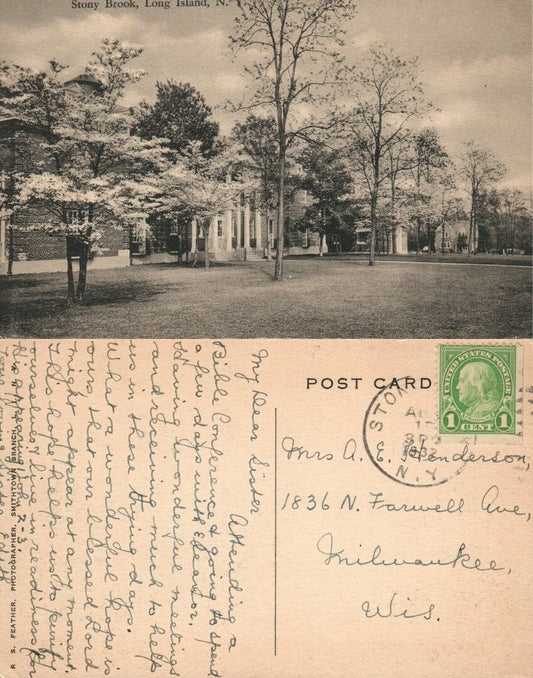 Stony Brook, Long Island, N. Y
POST CARD
UNITED STATES POSTAGE
FRANKLIN
1 CENT 1
STON
N.Y.
Mrs A. E. Henderson,
1836 N. Farwell Ave,
Milwaukee,
Wis.
My dear Sister
Attending a
Bible Conference & going to spend
a few days with Eleanor.
Having wonderful meetings
and receiving much to help
us in these trying days.
What a wonderful hope is
ours that our blessed Lord
might appear at any moment.
This hope helps us to purify
ourselves & live in readiness for
His appearing. 1 Jn. 3 2-3
R. S. FEATHER, PHOTOGRAPHER, SMITHTOWN BRANCH,